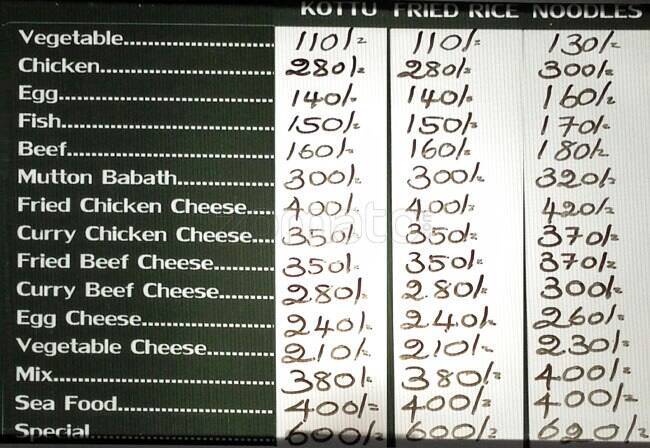 KOTTU FRIED RICE NOODLES
Vegetable 110/= 110/= 130/=
Chicken 280/= 280/= 300/=
Egg 140/= 140/= 160/=
Fish 150/= 150/= 170/=
Beef 160/= 160/= 180/=
Mutton Babath 300/= 300/= 320/=
Fried Chicken Cheese 400/= 400/= 420/=
Curry Chicken Cheese 350/= 350/= 370/=
Fried Beef Cheese 350/= 350/= 370/=
Curry Beef Cheese 280/= 280/= 300/=
Egg Cheese 240/= 240/= 260/=
Vegetable Cheese 210/= 210/= 230/=
Mix 380/= 380/= 400/=
Sea Food 400/= 400/= 400/=
Special 600/= 600/=